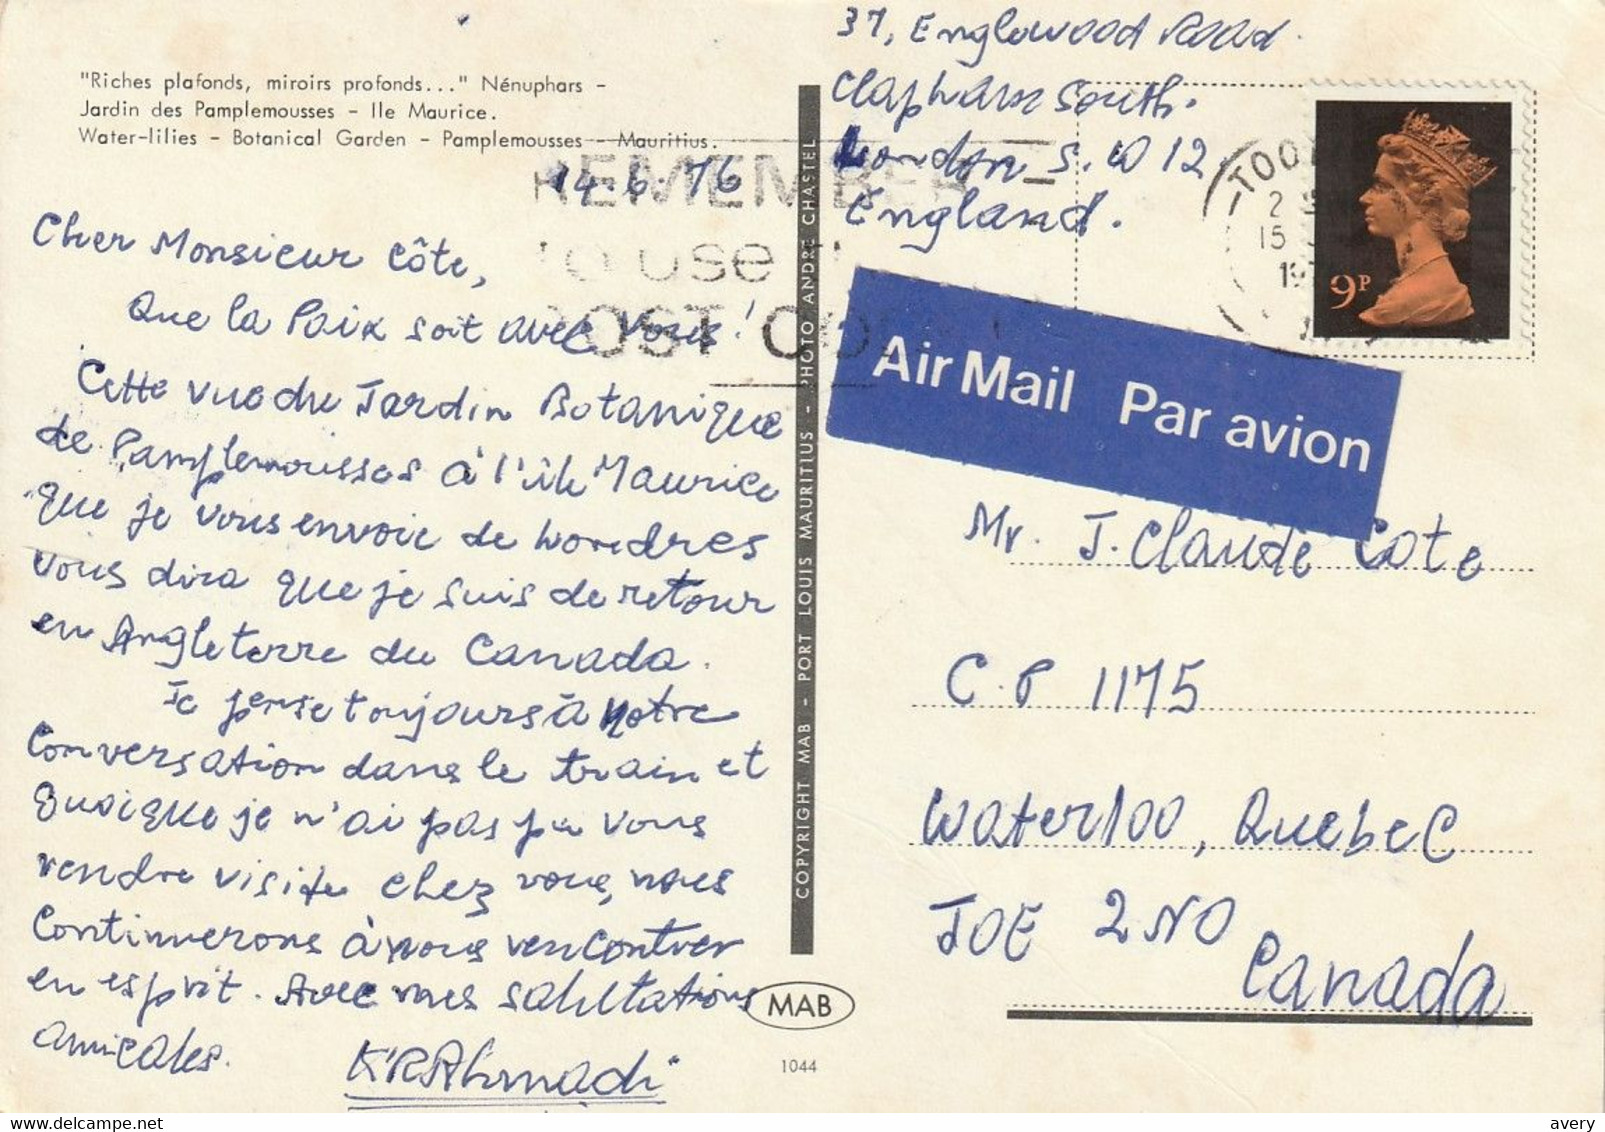 "Riches plafonds, miroirs profonds..." Nénuphars -
Jardin des Pamplemousses - Ile Maurice.
Water-lilies - Botanical Garden - Pamplemousses - Mauritius.
14.6.76
Cher Monsieur Côte,
Que la Paix soit avec vous!
Cette vue du Jardin Botanique
de Pamplemousses à l'île Maurice
que je vous envoie de Londres
vous dira que je suis de retour
en Angleterre du Canada.
Je pense toujours à notre
conversation dans le train et
quoique je n'ai pas pu vous
rendre visite chez vous, nous
continuerons à nous rencontrer
en esprit. Avec mes salutations
amicales.
37, Englewood Road.
Clapham South.
London S.W 12
England.
REMEMBER -
to use
POST
TOO
2
15
19
9P
Air Mail Par avion
Mr. J. Claude Cote
C.P 1175
Waterloo, Quebec
JOE 2NO
Canada
COPYRIGHT MAB - PORT LOUIS MAURITIUS - PHOTO ANDRE CHASTEL
MAB
1044
avery